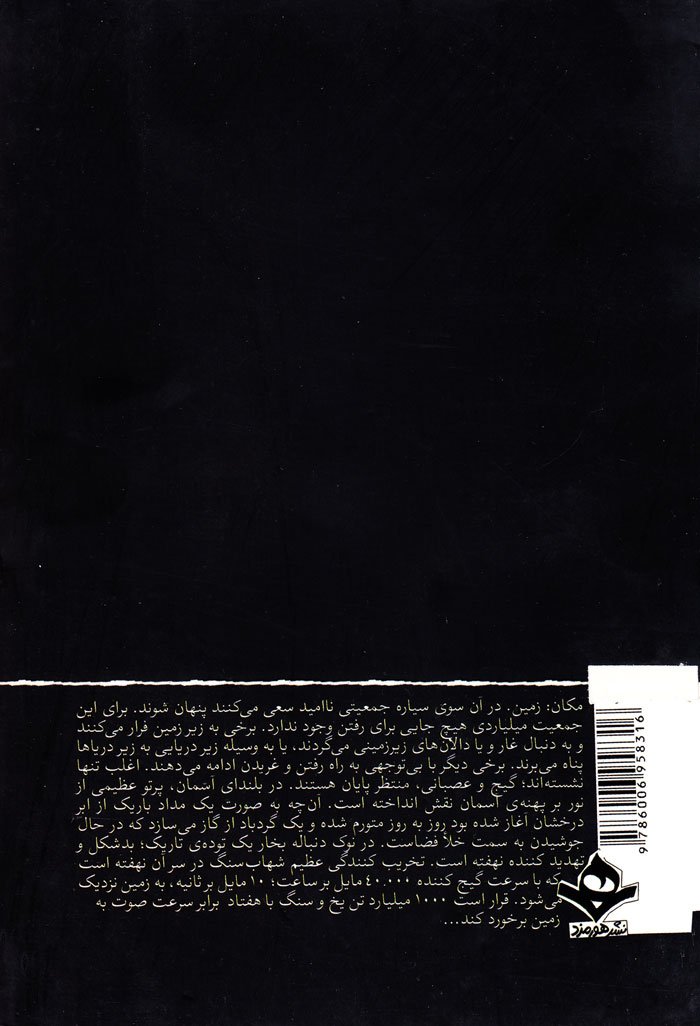 مکان: زمین. در آن سوی سیاره جمعیتی ناامید سعی می‌کنند پنهان شوند. برای این
جمعیت میلیاردی هیچ جایی برای رفتن وجود ندارد. برخی به زیر زمین فرار می‌کنند
و به دنبال غار و یا دالان‌های زیرزمینی می‌گردند. یا به وسیله زیردریایی به زیر دریاها
پناه می‌برند. برخی دیگر با بی‌توجهی به راه رفتن و غریدن ادامه می‌دهند. اغلب تنها
نشسته‌اند؛ گیج و عصبانی، منتظر پایان هستند. در بلندای آسمان، پرتو عظیمی از
نور بر پهنه‌ی آسمان نقش انداخته است. آن‌چه به صورت یک مداد باریک از ابر
درخشان آغاز شده بود روز به روز متورم شده و یک گردباد از گاز می‌سازد که در حال
جوشیدن به سمت خلأ فضاست. در نوک دنباله بخار یک توده‌ی تاریک؛ بدشکل و
تهدید کننده نهفته است. تخریب کنندگی عظیم شهاب‌سنگ در سر آن نهفته است
که با سرعت گیج کننده ۴۰.۰۰۰ مایل بر ساعت؛ ۱۰ مایل بر ثانیه، به زمین نزدیک
می‌شود. قرار است ۱۰۰۰ میلیارد تن یخ و سنگ با هفتاد برابر سرعت صوت به
زمین برخورد کند...
9 786006 958316
نشر هورمزد